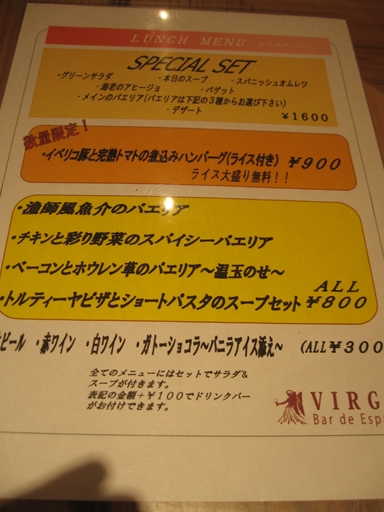 LUNCH MENU
SPECIAL SET
・グリーンサラダ ・本日のスープ ・スパニッシュオムレツ
・海老のアヒージョ ・バゲット
・メインのパエリア(パエリアは下記の３種からお選び下さい)
・デザート
￥１６００
数量限定！
・イベリコ豚と完熟トマトの煮込みハンバーグ(ライス付き) ￥９００
ライス大盛り無料！！
・漁師風魚介のパエリア
・チキンと彩り野菜のスパイシーパエリア
・ベーコンとホウレン草のパエリア～温玉のせ～
ＡＬＬ
・トルティーヤピザとショートパスタのスープセット ￥８００
ビール ・赤ワイン ・白ワイン ・ガトーショコラ～バニラアイス添え～ (ＡＬＬ￥３００
全てのメニューにはセットでサラダ&
スープが付きます。
表記の金額＋￥１００でドリンクバー
がお付けできます。
VIRG
Bar de Espa